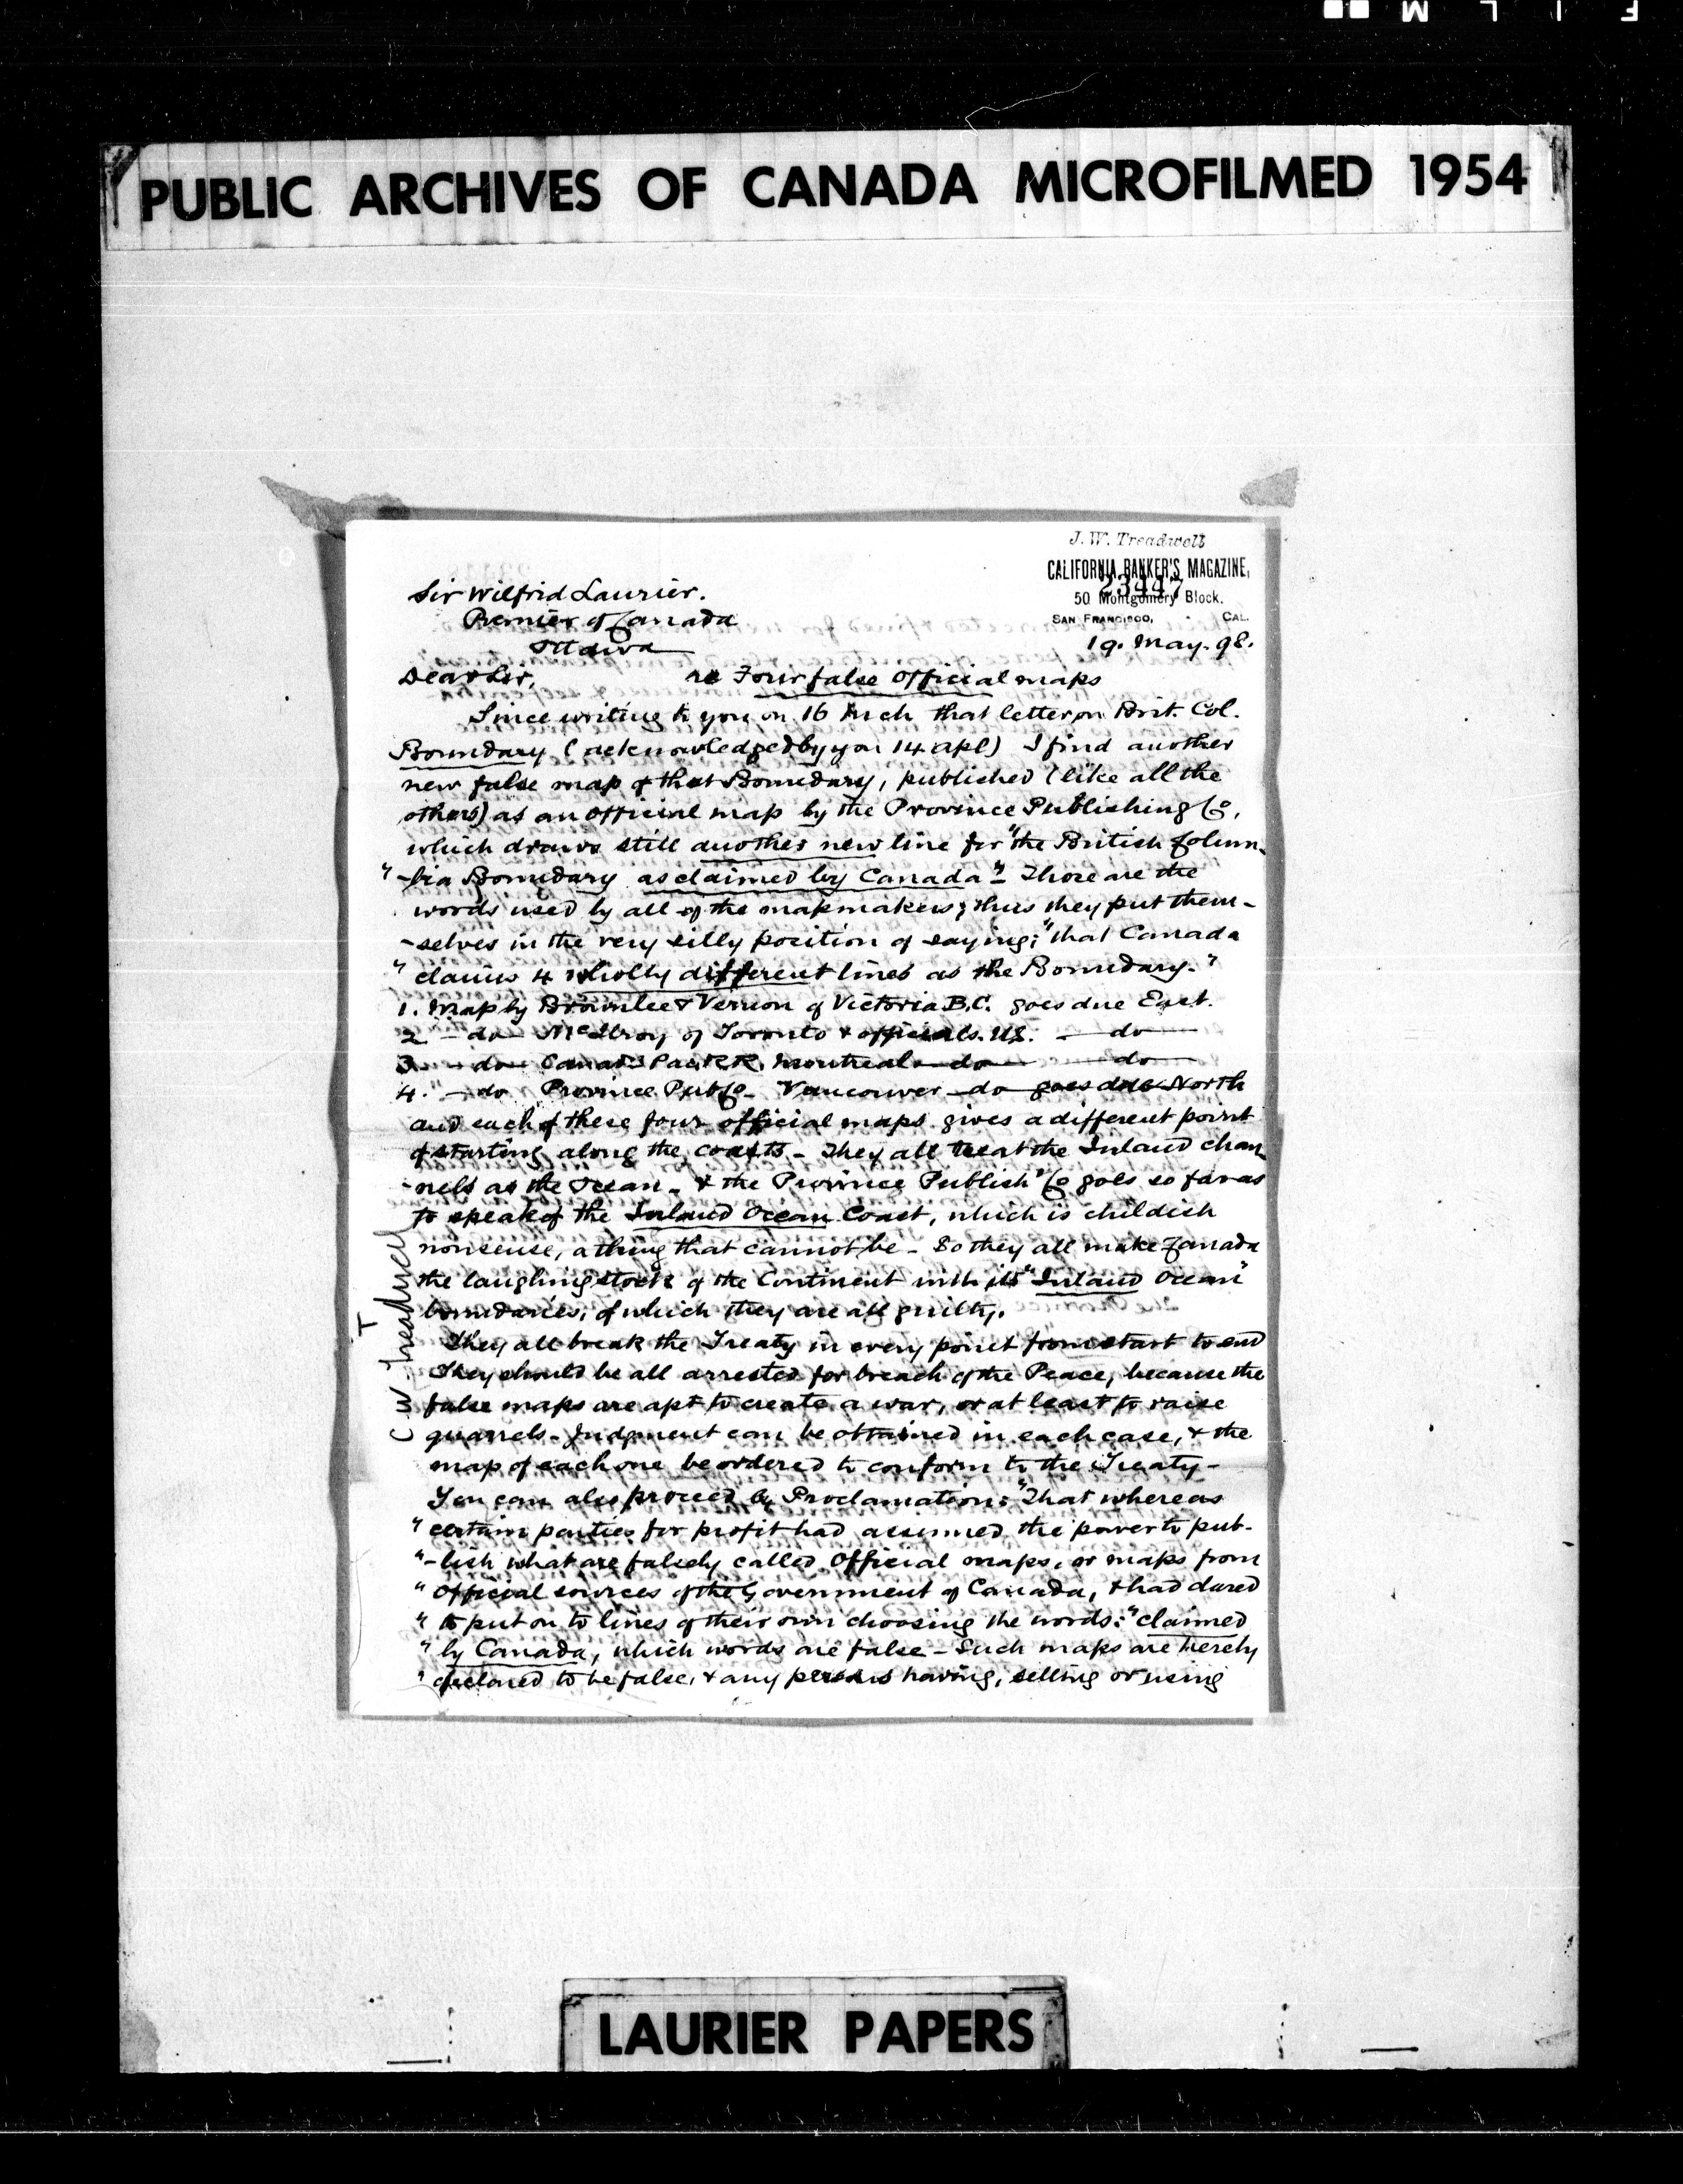 F I L M
PUBLIC ARCHIVES OF CANADA MICROFILMED 1954
J. W. Treadwell
CALIFORNIA BANKER'S MAGAZINE,
23447
50 Montgomery Block.
SAN FRANCISCO, - CAL.
19. May. 98.
Sir Wilfrid Laurier.
Premier of Canada
Ottawa
Dear Sir, re Four false Official maps
Since writing to you on 16 Mch that letter on Brit. Col.
Boundary (acknowledged by you 14 apl) I find another
new false map of that Boundary, published (like all the
others) as an official map by the Province Publishing Co,
which draws still another new line for "the British Colum-
"-bia Boundary as claimed by Canada" - Those are the
words used by all of the mapmakers; thus they put them-
-selves in the very silly position of saying; "that Canada
" claims 4 wholly different lines as the Boundary."
1. Map by Brownlee & Vernon of Victoria B.C. goes due East.
2 - do - McIlroy of Toronto & officials. US. - do -
3 - do - Canad. Pac RR. Montreal - do - - do -
4. - do Province Pub Co - Vancouver - do - goes due North
and each of these four official maps gives a different point
of starting along the coasts - They all treat the Inland chan-
-nels as the Ocean - & the Province Publish" Co goes so far as
to speak of the Inland Ocean Coast, which is childish
nonsense, a thing that cannot be - So they all make Canada
the laughing stock of the Continent with its "Inland Ocean"
boundaries, of which they are all guilty.
They all break the Treaty in every point from start to end
They should be all arrested for breach of the Peace, because the
false maps are apt to create a war, or at least to raise
quarrels - Judgment can be obtained in each case, & the
map of each one be ordered to conform to the Treaty -
You can also proceed by Proclamation: "That whereas
" certain parties for profit had assumed the power to pub-
"-lish what are falsely called Official maps, or maps from
" Official sources of the Government of Canada, & had dared
" to put on to lines of their own choosing the words: "claimed
" by Canada, which words are false - Such maps are hereby
" declared to be false, & any persons having, selling or using
T
C W Treadwell
LAURIER PAPERS